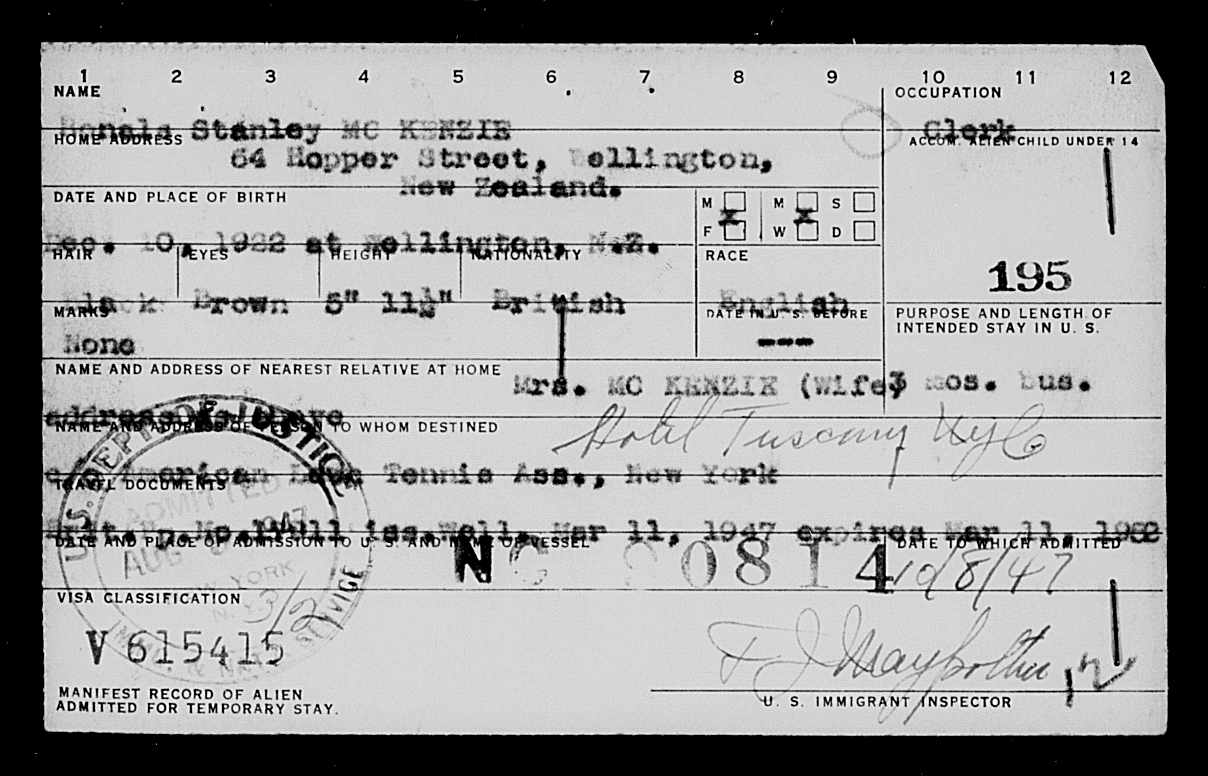 1 2 3 4 5 6 7 8 9 10 11 12
NAME
OCCUPATION
Stanley MC KENZIE
Clerk
HOME ADDRESS
ACCOM. ALIEN CHILD UNDER 14
64 Hopper Street, Wellington,
New Zealand.
DATE AND PLACE OF BIRTH
M M S
X X
F W D
Dec. 10, 1922 at Wellington, N.Z.
HAIR EYES HEIGHT NATIONALITY
RACE
195
Black Brown 5" 11½" British
English
MARKS
DATE IN U.S. BEFORE
PURPOSE AND LENGTH OF
INTENDED STAY IN U. S.
None
---
NAME AND ADDRESS OF NEAREST RELATIVE AT HOME
Mrs. MC KENZIE (Wife)
3 mos. bus.
address as above
NAME AND ADDRESS OF PERSON TO WHOM DESTINED
Hotel Tuscany NYC
American Tennis Ass., New York
TRAVEL DOCUMENTS
iss. Well. Mar 11, 1947 expires Mar 11, 1952
DATE AND PLACE OF ADMISSION TO U. S. AND NAME OF VESSEL
DATE TO WHICH ADMITTED
NC 20814
10/8/47
U.S. DEPT. OF JUSTICE
ADMITTED
AUG 1947
NEW YORK
VISA CLASSIFICATION
3/2
V 615415
MANIFEST RECORD OF ALIEN
ADMITTED FOR TEMPORARY STAY.
U. S. IMMIGRANT INSPECTOR